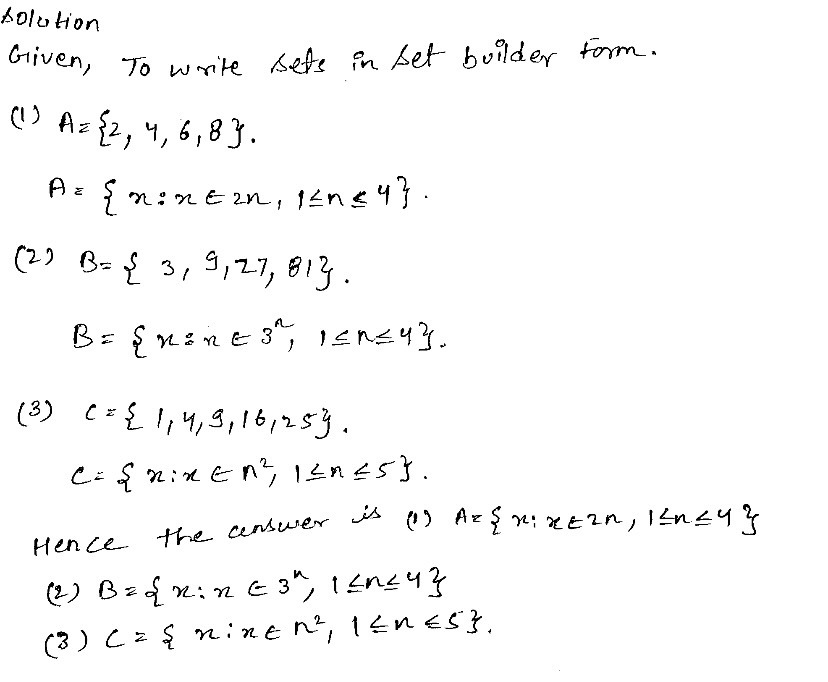 Solution
Given, To write sets in set builder form.
(1) A={2, 4, 6, 8}.
A= {x:x ∈ 2n, 1≤n≤4}.
(2) B= { 3, 9, 27, 81}.
B= {x:x ∈ 3ⁿ, 1≤n≤4}.
(3) C={ 1, 4, 9, 16, 25}.
C= {x:x ∈ n², 1≤n≤5}.
Hence the answer is (1) A={x:x∈2n, 1≤n≤4}
(2) B={x:x ∈ 3ⁿ, 1≤n≤4}
(3) C={ x:x∈ n², 1≤n≤5}.